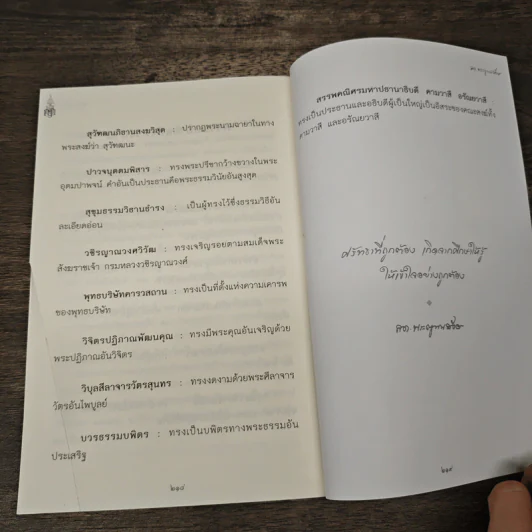 สุวัฑฒนภิธานสงฆวิสุต : ปรากฏพระนามฉายาในทาง
พระสงฆ์ว่า สุวัฑฒนะ
ปาวจนุตตมพิสาร : ทรงพระปรีชากว้างขวางในพระ
อุดมปาพจน์ คำอันเป็นประธานคือพระธรรมวินัยอันสูงสุด
สุขุมธรรมวิธานธำรง : เป็นผู้ทรงไว้ซึ่งธรรมวิธีอัน
ละเอียดอ่อน
วชิรญาณวงศวิวัฒ : ทรงเจริญรอยตามสมเด็จพระ
สังฆราชเจ้า กรมหลวงวชิรญาณวงศ์
พุทธบริษัทคารวสถาน : ทรงเป็นที่ตั้งแห่งความเคารพ
ของพุทธบริษัท
วิจิตรปฏิภาณพัฒนคุณ : ทรงมีพระคุณอันเจริญด้วย
พระปฏิภาณอันวิจิตร
วิบุลสีลาจารวัตรสุนทร : ทรงงดงามด้วยพระศีลาจาร
วัตรอันไพบูลย์
บวรธรรมบพิตร : ทรงเป็นบพิตรทางพระธรรมอัน
ประเสริฐ
๒๑๘
สรรพคณิศรมหาปธานาธิบดี คามวาสี อรัณยวาสี
ทรงเป็นประธานและอธิบดีผู้เป็นใหญ่เป็นอิสระของคณะสงฆ์ทั้ง
คามวาสี และอรัณยวาสี
ศรัทธาที่ถูกต้อง เกิดจากศึกษาให้รู้
ให้เข้าใจอย่างถูกต้อง
๒๑๙